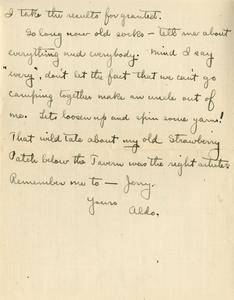 I take the results for granted.
So long now old socks - tell me about
everything and everybody. Mind I say
"every", don't let the fact that we can't go
camping together make an uncle out of
me. Lets loosen up and spin some yarns!
That wild tale about my old Strawberry
Patch below the Tavern was the right
Remember me to - Jerry.
Yours
Aldo.